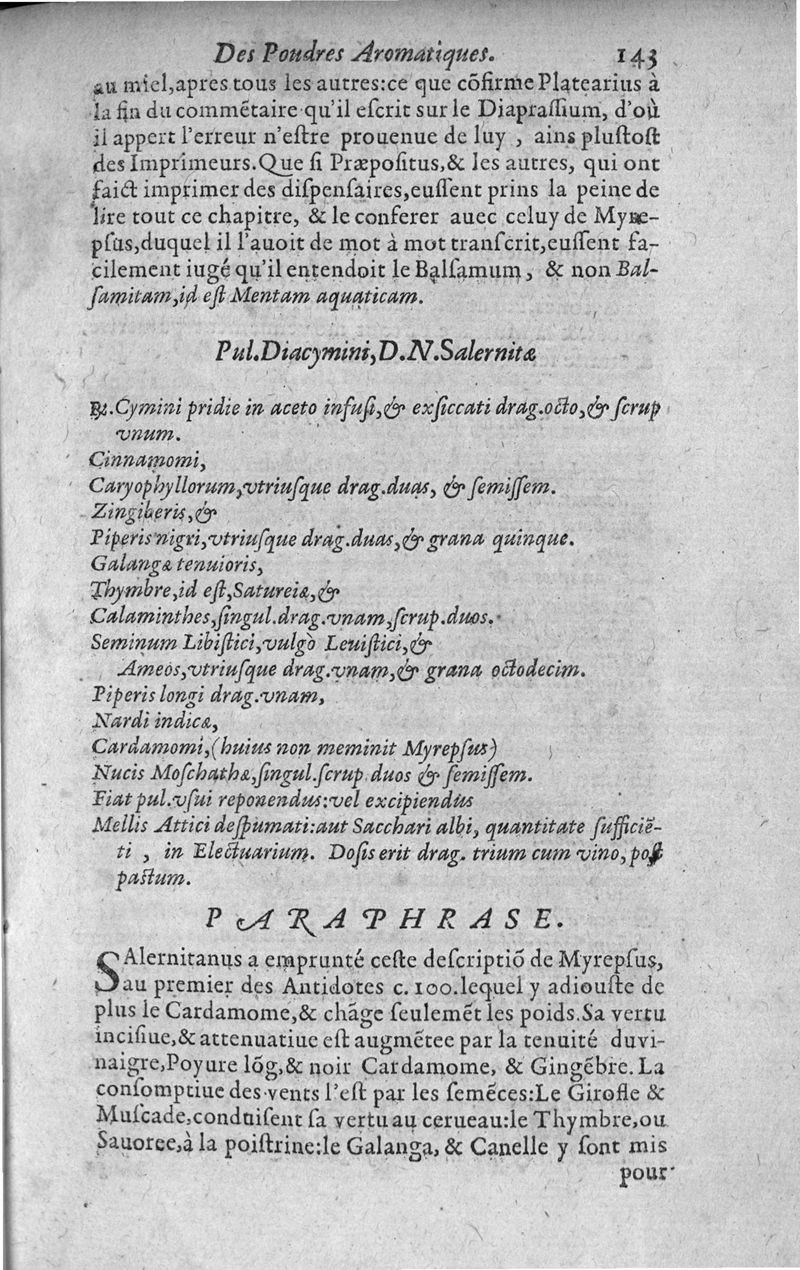 Des Poudres Aromatiques. 143
au miel,apres tous les autres:ce que cõfirme Platearius à
la fin du commẽtaire qu'il eſcrit sur le Diapraſſium, d'où
il appert l'erreur n'eſtre prouenue de luy , ains pluſtoſt
des Imprimeurs.Que ſi Præpoſitus,& les autres, qui ont
faict imprimer des diſpenſaires,euſſent prins la peine de
lire tout ce chapitre, & le conferer auec celuy de Myre-
pſus,duquel il l'auoit de mot à mot tranſcrit,euſſent fa-
cilement iugé qu'il entendoit le Balſamum, & non Bal-
ſamitam,id eſt Mentam aquaticam.
Pul.Diacymini,D.N.Salernitæ
℞.Cymini pridie in aceto infuſi,& exſiccati drag.octo,& ſcrup
vnum.
Cinnamomi,
Caryophyllorum,vtriuſque drag.duas, & ſemiſſem.
Zingiberis,&
Piperis nigri,vtriuſque drag.duas,& grana quinque.
Galangæ tenuioris,
Thymbre,id eſt,Satureiæ,&
Calaminthes,ſingul.drag.vnam,ſcrup.duos.
Seminum Libiſtici,vulgò Leuiſtici,&
Ameos,vtriuſque drag.vnam,& grana octodecim.
Piperis longi drag.vnam,
Nardi indicæ,
Cardamomi,(huius non meminit Myrepſus)
Nucis Moſchathæ,ſingul.ſcrup duos & ſemiſſem.
Fiat pul.vſui reponendus:vel excipiendus
Mellis Attici deſpumati:aut Sacchari albi, quantitate ſufficiẽ-
ti , in Electuarium. Doſis erit drag. trium cum vino, poſt
paſtum.
PARAPHRASE.
SAlernitanus a emprunté ceſte deſcriptiõ de Myrepſus,
au premier des Antidotes c. 100.lequel y adiouſte de
plus le Cardamome,& chãge ſeulemẽt les poids.Sa vertu
inciſiue,& attenuatiue eſt augmẽtee par la tenuité duvi-
naigre,Poyure lõg,& noir Cardamome, & Gingẽbre.La
conſomptiue des vents l'eſt par les ſemẽces:Le Girofle &
Muſcade,conduiſent ſa vertu au cerueau:le Thymbre,ou
Sauoree,à la poiſtrine:le Galanga, & Canelle y ſont mis
pour